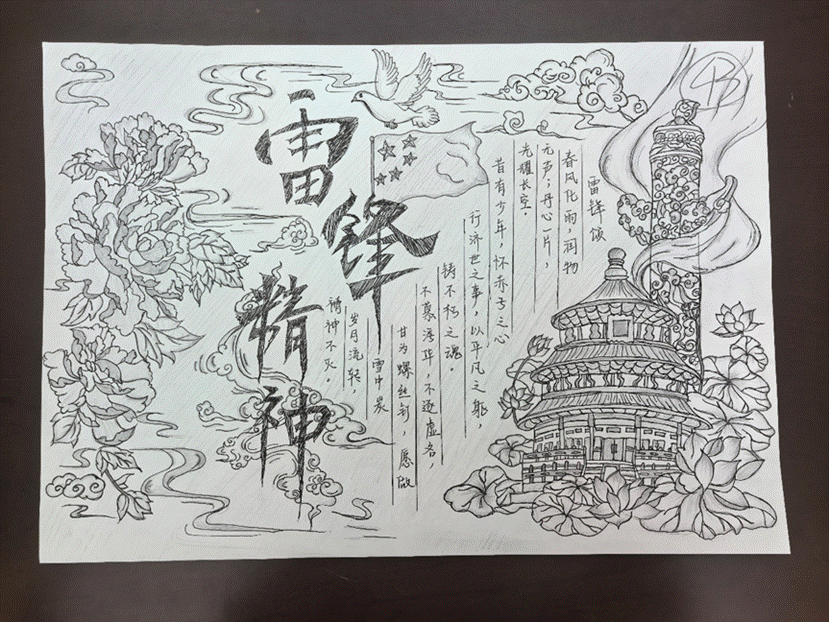 雷锋
精神
雷锋颂
春风化雨，润物
无声；丹心一片，
光耀长空。
昔有少年，怀赤子之心
行济世之事，以平凡之躯，
铸不朽之魂。
不慕浮华，不逐虚名，
甘为螺丝钉，愿做
雪中炭
岁月流转，
精神不灭。